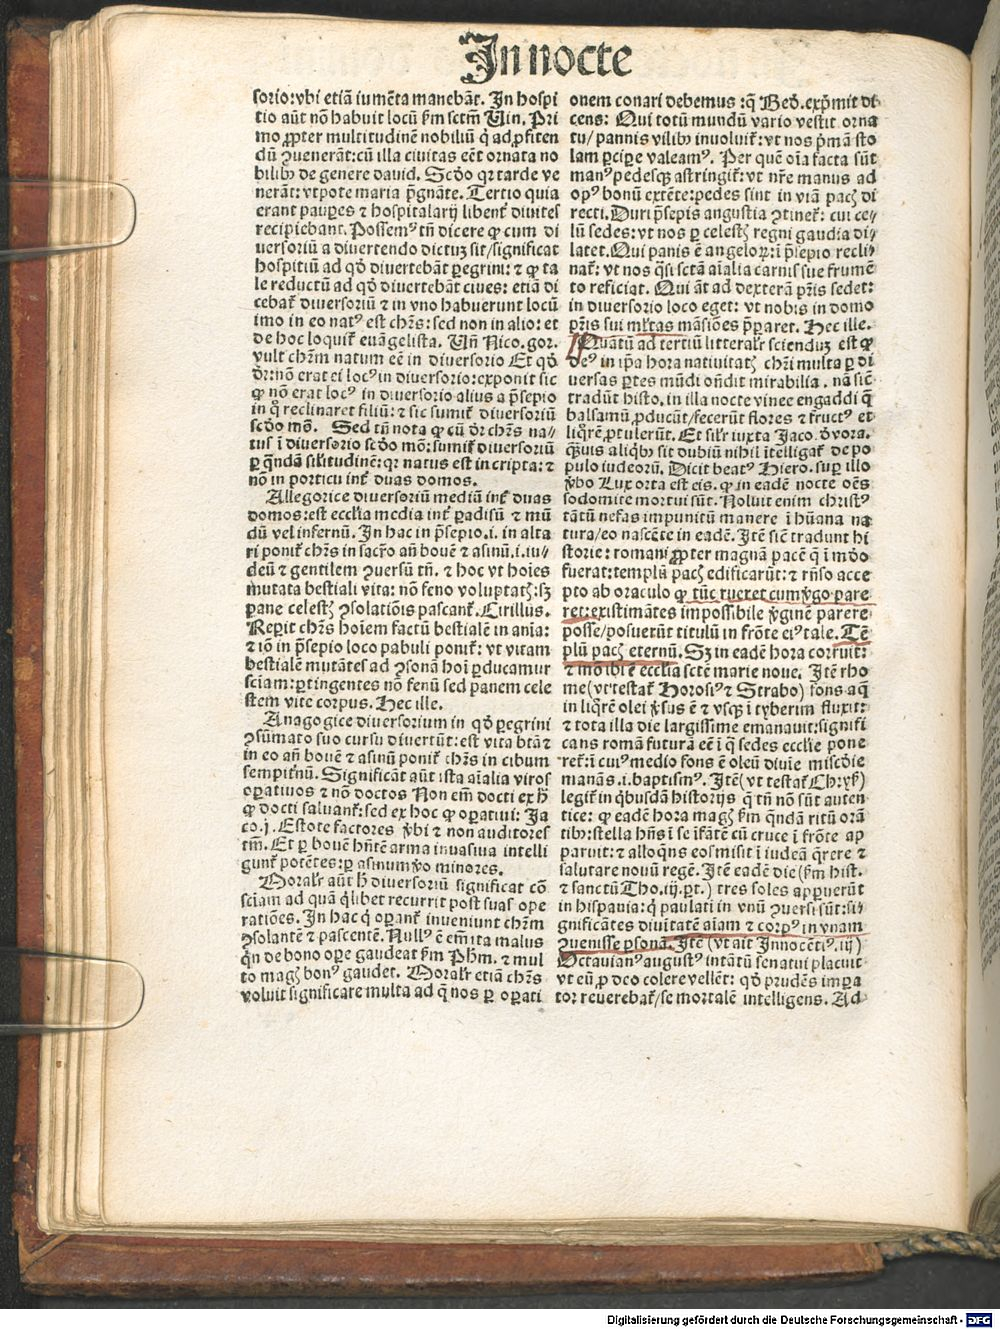 In nocte
sorio: vbi etiā iumēta manebāt. In hospi
tio aūt nō habuit locū ẜm sctm̄ Uin. Pri
mo ꝓpter multitudinē nobiliū q̇ ad ꝓfiten
dū ꝯuenerāt: cū illa ciuitas eēt ornata no
bilibꝰ de genere dauid. Scd̓o qꝛ tarde ve
nerāt: vtpote maria p̄gnāte. Tertio quia
erant pauꝑes ⁊ hospitalarij libent̓ diuites
recipiebant. Possemꝰ tn̄ dicere ꝙ cum di
uersoriū a diuertendo dictuꝫ sit/significat
hospitiū ad qd̓ diuertebāt ꝑegrini: ⁊ ꝙ ta
le reductū ad qd̓ diuertebāt ciues: etiā di
cebat̓ diuersoriū ⁊ in vno habuerunt locū
imo in eo natꝰ est chr̄s: sed non in alio: et
de hoc loquit̓ euāgelista. Uñ Nico. gor.
vult chr̄m natum eē in diuersorio Et qd̓
dr̄: nō erat ei locꝰ in diuersorio: exponit sic
ꝙ nō erat locꝰ in diuersorio alius a p̄sepio
in q̊ reclinaret filiū: ⁊ sic sumit̓ diuersoriū
scd̓o mō. Sed tn̄ nota ꝙ cū dr̄ chr̄s na⸗
tus ī diuersorio scd̓o mō: sumit̓ diuersoriū
ꝑ qn̄dā sil̓itudinē: qꝛ natus est in cripta: ⁊
nō in porticu int̓ duas domos.
Allegorice diuersoriū mediū int̓ duas
domos: est ecclīa media int̓ ꝑadisū ⁊ mū
dū vel infernū. In hac in p̄sepio .i. in alta
ri ponit̓ chr̄s in sacr̄o añ bouē ⁊ asinū .i. iu⸗
deū ⁊ gentilem ꝯuersū tn̄. ⁊ hoc vt hoīes
mutata bestiali vita: nō feno voluptatꝭ: sꝫ
pane celestꝭ ꝯsolatiōis pascant̓. Cirillus.
Reperit chr̄s hoīem factū bestialē in aīa:
⁊ iō in p̄sepio loco pabuli ponit̓: vt vitam
bestialē mutātes ad ꝯsonā hoī ꝑducamur
sciam: ꝑtingentes nō fenū sed panem cele
stem vite corpus. Hec ille.
Anagogice diuersorium in qd̓ ꝑegrini
ꝯsūmato suo cursu diuertūt: est vita btā ⁊
in eo añ bouē ⁊ asinū ponit̓ chr̄s in cibum
sempit̓nū. Significāt aūt ista aīalia viros
oꝑatiuos ⁊ nō doctos Non em̄ docti ex h̓
ꝙ docti saluant̓: sed ex hoc ꝙ oꝑatiui: Ja
co.j. Estote factores v̓bi ⁊ non auditores
tm̄. Et ꝑ bouē hn̄tē arma inuasiua intelli
gunt̓ potētes: ꝑ asinum v̓o minores.
Moral̓r aūt h̓ diuersoriū significat cō
sciam ad quā q̇libet recurrit post suas ope
ratiōes. In hac q̇ oꝑant̓ inueniunt chr̄m
ꝯsolantē ⁊ pascentē. Nullꝰ ē em̄ ita malus
qn̄ de bono oꝑe gaudeat ẜm Ph̄m. ⁊ mul
to magꝭ bonꝰ gaudet. Moral̓r etiā chr̄s
voluit significare multa ad q̄ nos ꝑ oꝑati
onem conari debemus: q̄ Bed̓. exp̄mit di
cens: Qui totū mundū vario vestit orna
tu/pannis vilibꝰ inuoluit̓: vt nos p̄mā sto
lam ꝑciꝑe valeamꝰ. Per quē oīa facta sūt
manꝰ pedesqꝫ astringit̓: vt nr̄e manus ad
opꝰ bonū extēte: pedes sint in viā pacꝭ di
recti. Duri p̄sepis angustia ꝯtinet̓: cui ce⸗
lū sedes: vt nos ꝑ celestꝭ regni gaudia di⸗
latet. Qui panis ē angeloꝝ: ī p̄sepio recli⸗
nat̓: vt nos q̄si sctā aīalia carnis sue frumē
to reficiat. Qui āt ad dexterā pr̄is sedet:
in diuersorio loco eget: vt nobis in domo
pr̄is sui ml̓tas māsiōes p̄ꝑaret. Hec ille.
Quātū ad tertiū litteral̓r sciendū est ꝙ
deꝰ in ip̄a hora natiuitatꝭ chr̄i multa ꝑ di
uersas ꝑtes mūdi on̄dit mirabilia. nā sic̄
tradūt histo. in illa nocte vinee engaddi q̄
balsamū ꝓducūt/fecerūt flores ⁊ fructꝰ et
liq̊rē ꝓtulerūt. Et sil̓r iuxta Jaco. d̓ vora.
q̄uis aliqb̓ꝰ sit dubiū nihil ītelligat̓ de po
pulo iudeorū. Dicit beatꝰ Hiero. suꝑ illo
v̓bo Lux orta est eis. ꝙ in eadē nocte oēs
sodomite mortui sūt. Noluit enim christꝰ
tātū nefas impunitū manere ī hūana na
tura/eo nascēte in eadē. Itē sic̄ tradunt hi
storie: romani ꝓpter magnā pacē q̄ ī mūdo
fuerat: templū pacꝭ edificarūt: ⁊ rn̄so acce
pto ab oraculo ꝙ tūc rueret cum v̓go pare
ret: existimātes impossibile v̓ginē parere
posse/posuerūt titulū in frōte eiꝰ tale. Tē
plū pacꝭ eternū. Sꝫ in eadē hora corruit:
⁊ mō ibi ē ecclīa scte marie noue. Itē rho
me (vt testat̓ Horosiꝰ ⁊ Strabo) fons aq̄
in liq̊rē olei v̓sus ē ⁊ vsqꝫ ī tyberim fluxit:
⁊ tota illa die largissime emanauit: signifi
cans romā futurā eē ī q̄ sedes ecclie pone
ret̓: ī cuiꝰ medio fons ē oleū diuīe miscd̓ie
manās .i. baptismꝰ. Itē (vt testat̓ Chrys̓)
legit̓ in qbusdā historijs q̄ tn̄ nō sūt auten
tice: ꝙ eadē hora magꝭ ẜm qn̄dā ritū orā
tibꝰ: stella hn̄s ī se īfātē cū cruce ī frōte ap
paruit: ⁊ alloq̄ns eos misit ī iudeā q̄rere ⁊
salutare nouū regē. Itē eadē die (ẜm hist.
⁊ sanctū Tho. iij. pt.) tres soles apparuerūt
in hispania: q̇ paulati in vnū ꝯuersi sūt: si⸗
gnificātes diuitatē aīam ⁊ corpꝰ in vnam
ꝯuenisse ꝑsonā. Itē (vt ait Innocētiꝰ. iij)
Octauianꝰ augustꝰ intātū senatui placuit
vt eū ꝓ deo colere vellēt: qd̓ prudēs imꝑa
tor reuerebat̓/se mortalē intelligens. Ad
Digitalisierung gefördert durch die Deutsche Forschungsgemeinschaft - DFG